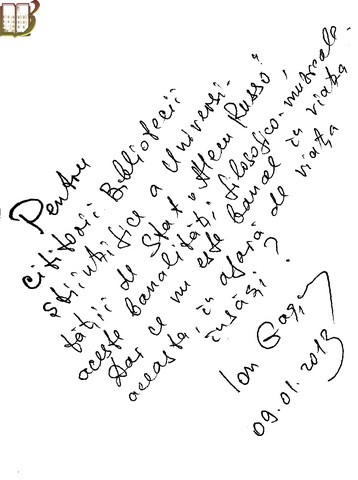 Pentru
cititorii Bibliotecii
Științifice a Universi-
tății de Stat „Alecu Russo"
aceste banalități filosofico-muzicale.
Dar ce nu este banal în viața
aceasta, în afară de viața
însăși?
Ion Gagim
09.01.2013